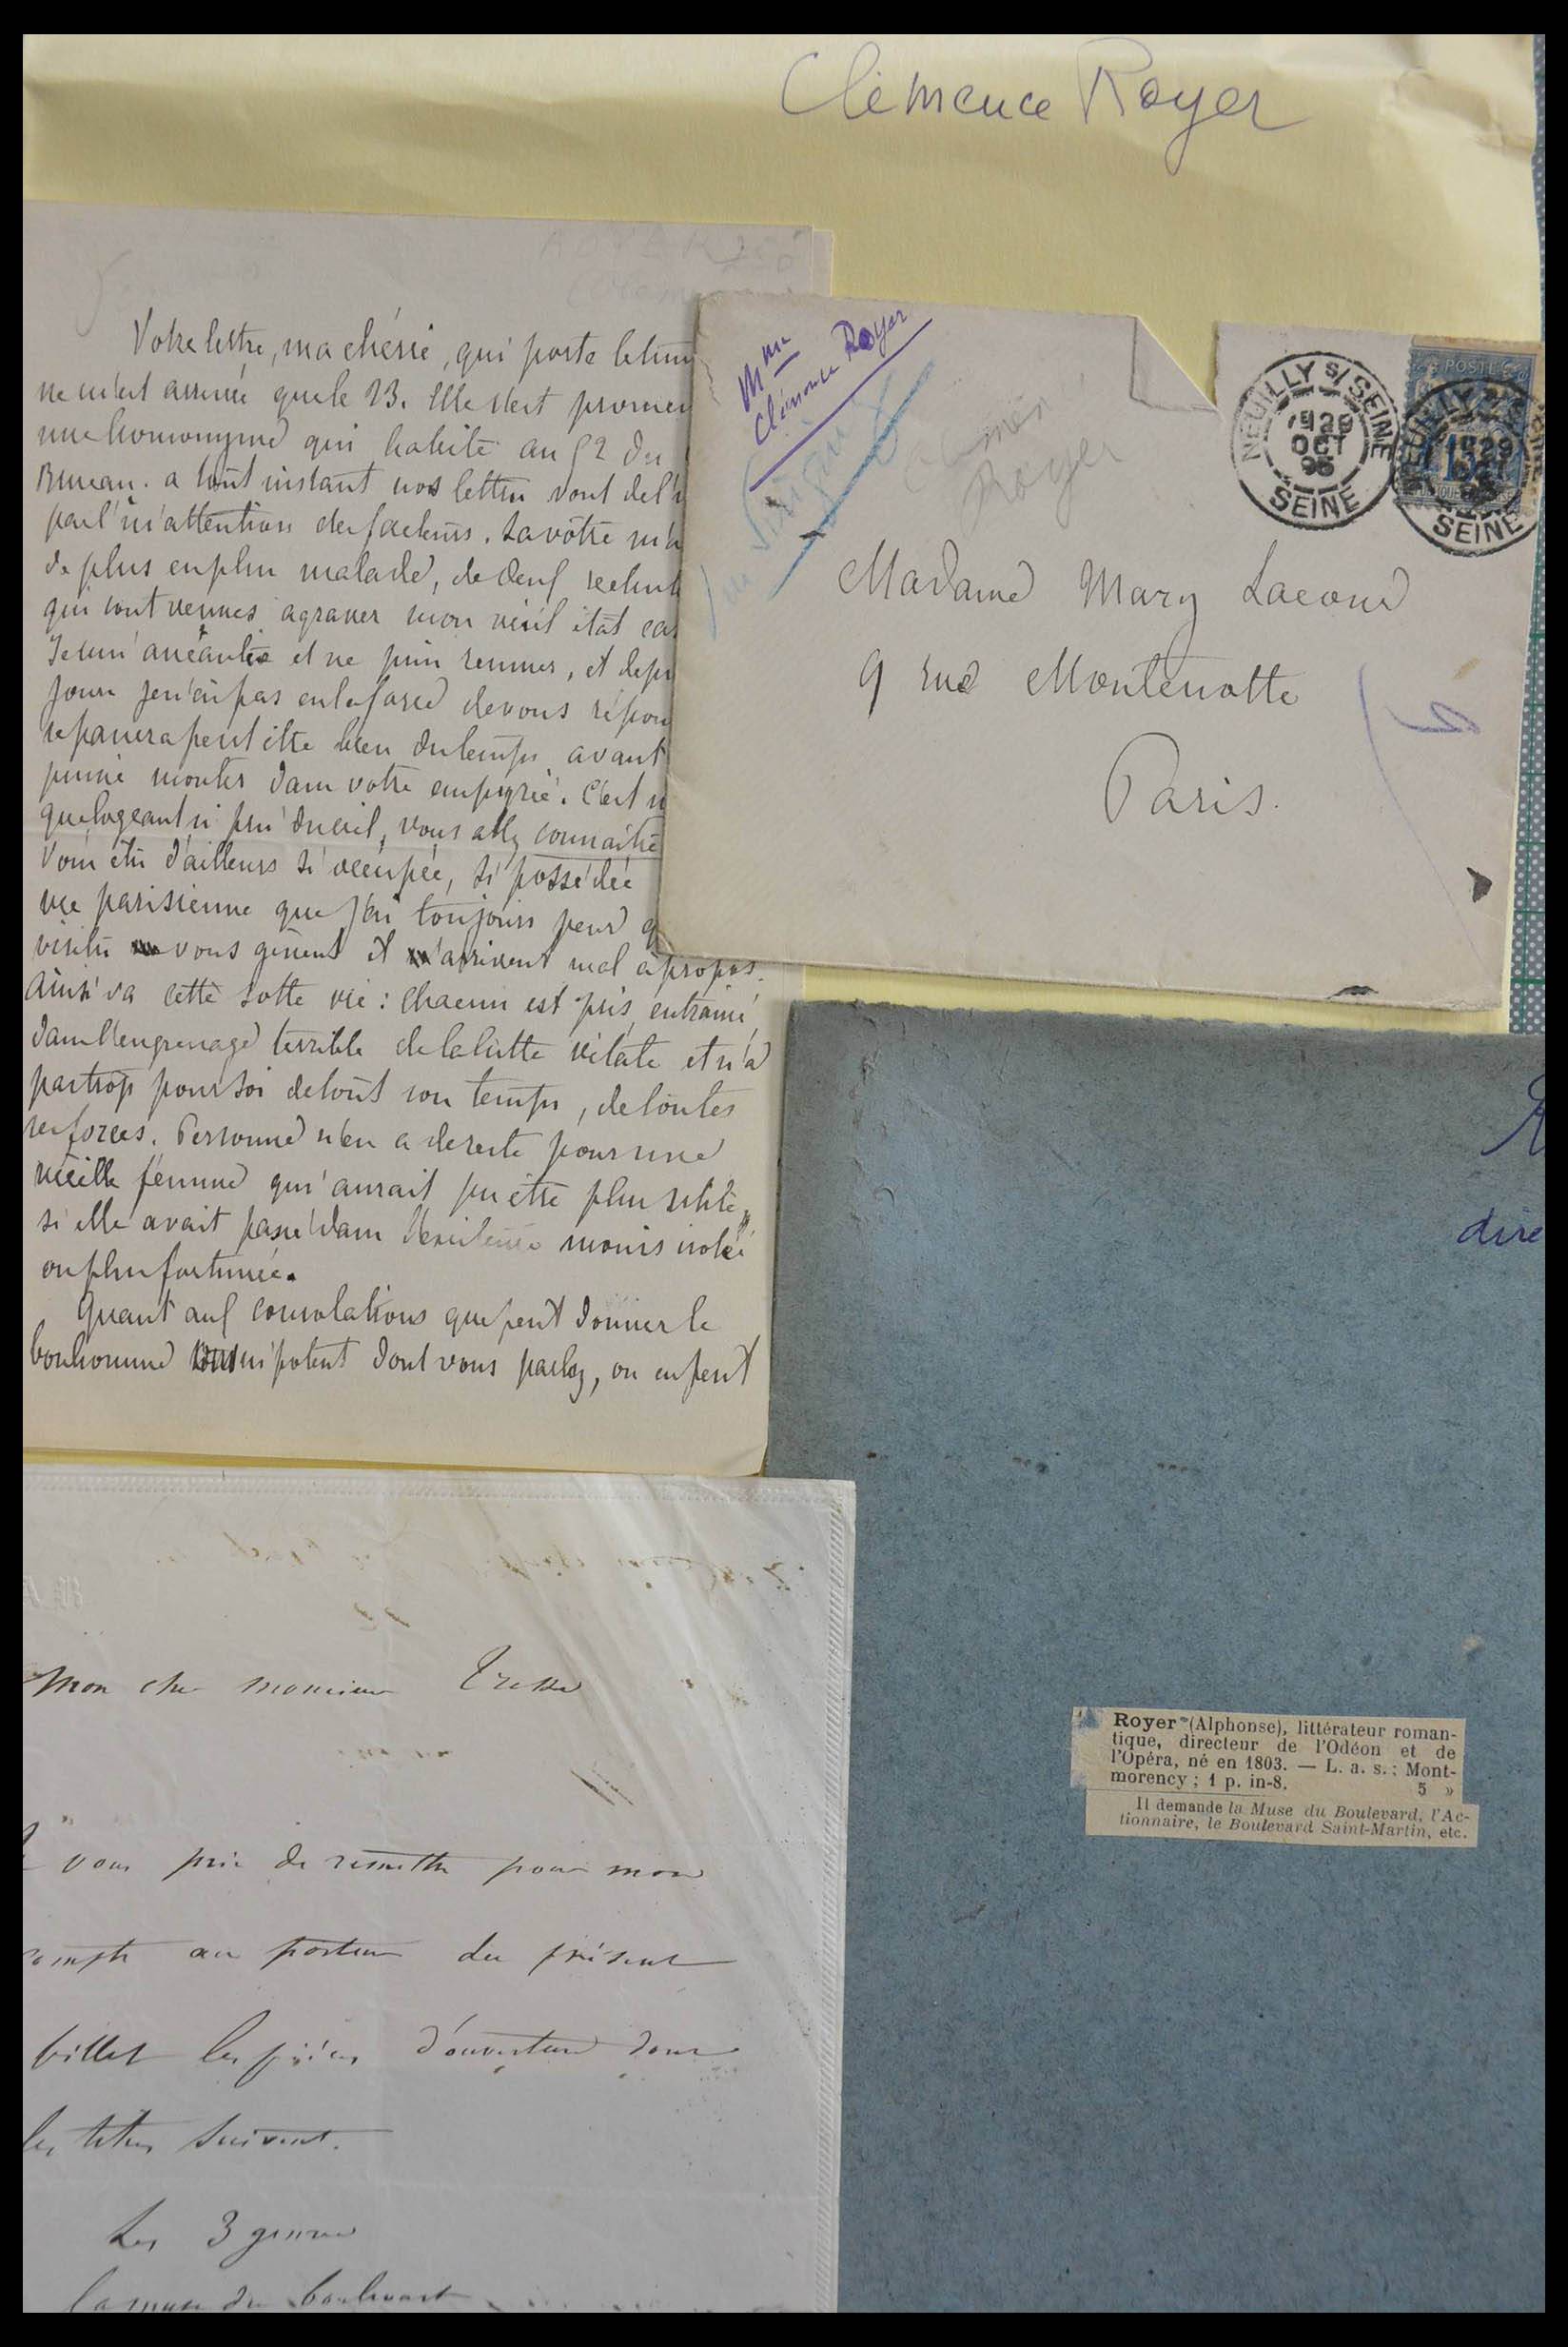 Clémence Royer
ROYER
Votre lettre, ma chérie, qui porte le tim
ne m'est arrivée que le 23. Elle s'est promen
une homonyme qui habite au 52 du
Bureau. a tout instant nos lettres sont
par l'inattention des facteurs. La vôtre m'a
de plus en plus malade, de deux
qui sont venues agraver mon vieil état
Je suis anéantie et ne puis remuer, et depu
jours je n'ai pas eu la force de vous répon
se passera peut être bien du temps avant
puisse monter dans votre empyrée. C'est
que logeant si près du ciel, vous allez connaître
Vous êtes d'ailleurs si occupée, si possédée
vie parisienne que j'ai toujours peur q
visites vous gênent et n'arrivent mal à propos.
Ainsi va cette sotte vie : chacun est pris, entraîné,
dans l'engrenage terrible de la lutte vitale et n'a
pas trop pour soi de tout son temps, de toutes
ses forces. Personne n'en a de reste pour une
vieille femme qui aurait pu être plus utile,
si elle avait passé dans l'existence moins isolée
ou plus fortunée.
Quant aux consolations que peut donner le
bonhomme omnipotent dont vous parlez, on en peut
Mme
Clémence Royer
Clémence
Royer
NEUILLY S/ SEINE
1E 29
OCT
95
SEINE
POSTES
15
NEUILLY S/ SEINE
29
SEINE
Madame Mary Lacour
9 rue Montenotte
Paris.
dire
Royer (Alphonse), littérateur roman-
tique, directeur de l'Odéon et de
l'Opéra, né en 1803. — L. a. s.; Mont-
morency ; 1 p. in-8. 5 »
Il demande la Muse du Boulevard, l'Ac-
tionnaire, le Boulevard Saint-Martin, etc.
Mon cher monsieur Tresse
vous prie de remettre pour mon
compte au porteur du présent
billet les pièces d'ouverture dont
les titres suivent.
Les 3 gamins
la muse du boulevart